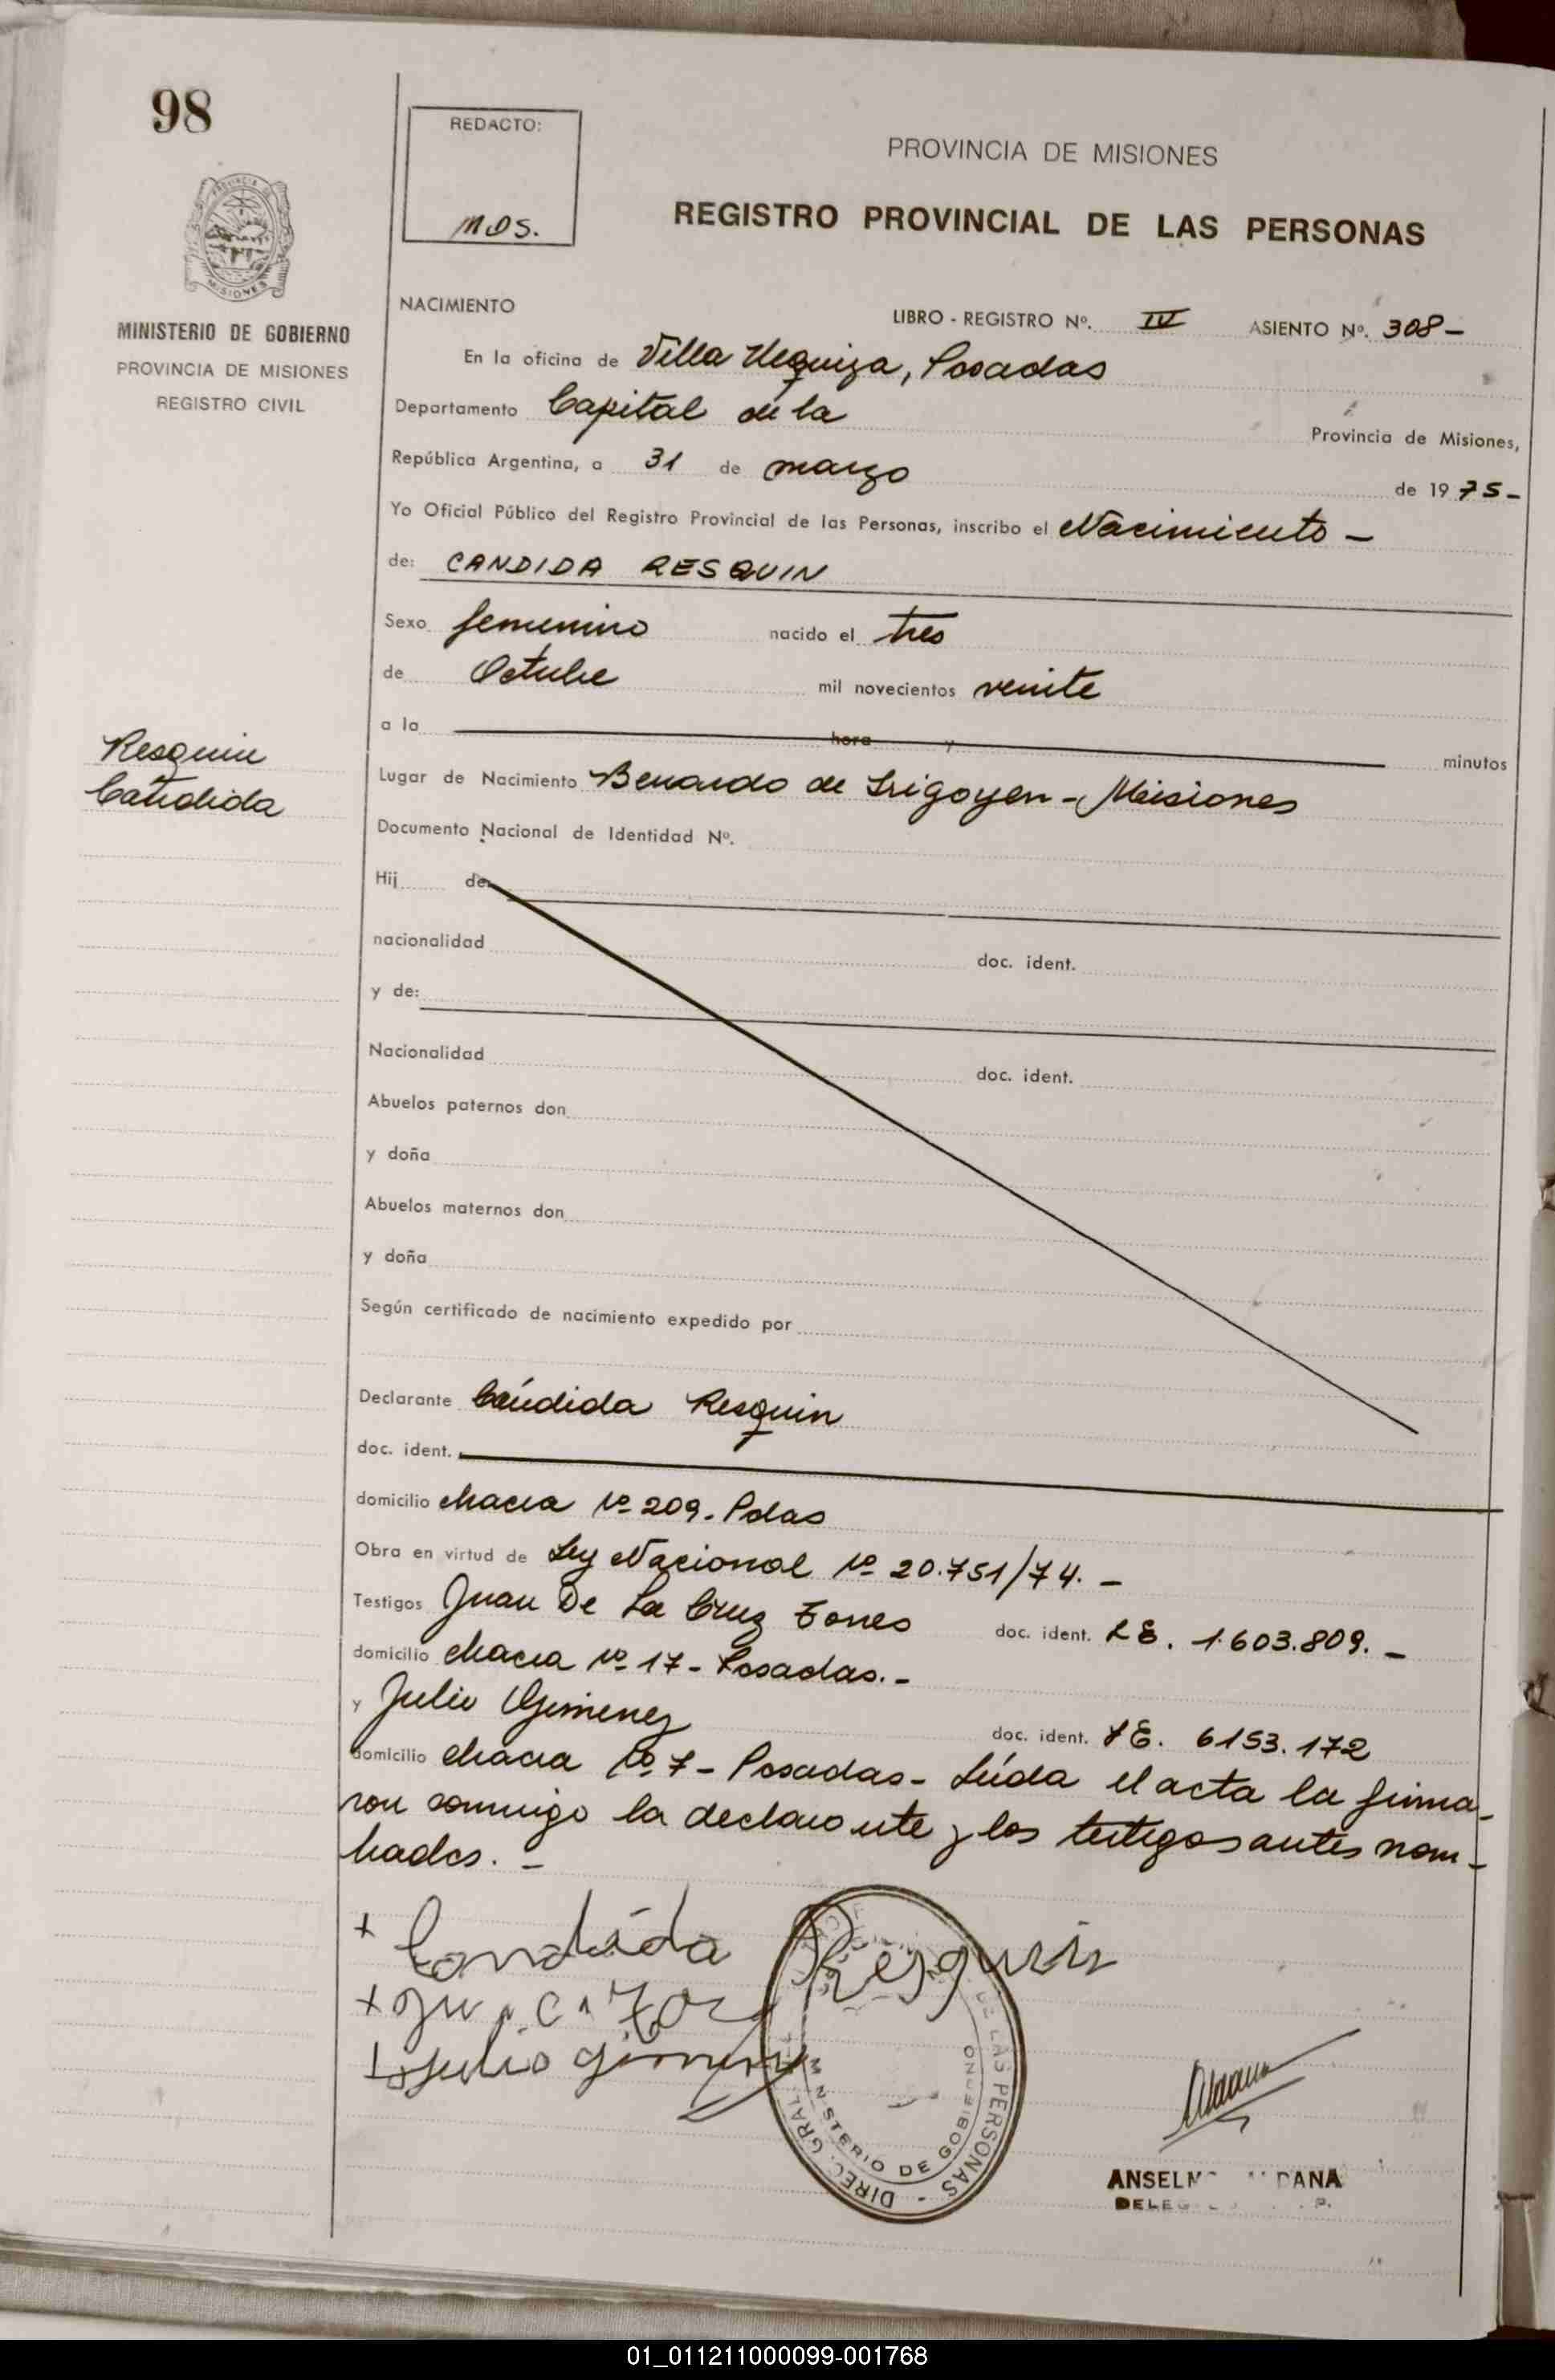 98
REDACTO:
MDS.
PROVINCIA DE MISIONES
REGISTRO PROVINCIAL DE LAS PERSONAS
PROVINCIA DE
MISIONES
MINISTERIO DE GOBIERNO
PROVINCIA DE MISIONES
REGISTRO CIVIL
NACIMIENTO
LIBRO - REGISTRO Nº. IV ASIENTO Nº. 308 -
En la oficina de Villa Urquiza, Posadas
Departamento Capital de la Provincia de Misiones,
República Argentina, a 31 de marzo de 1975 -
Yo Oficial Público del Registro Provincial de las Personas, inscribo el Nacimiento -
de: CANDIDA RESQUIN
Sexo femenino nacido el tres
de Octubre mil novecientos veinte
a la hora y minutos
Resquin
Cándida
Lugar de Nacimiento Bernardo de Irigoyen - Misiones
Documento Nacional de Identidad Nº.
Hij de
nacionalidad doc. ident.
y de:
Nacionalidad doc. ident.
Abuelos paternos don
y doña
Abuelos maternos don
y doña
Según certificado de nacimiento expedido por
Declarante Cándida Resquin
doc. ident.
domicilio chacra Nº 209. Pdas
Obra en virtud de Ley Nacional Nº 20.751/74. -
Testigos Juan De La Cruz doc. ident. LE. 1.603.809. -
domicilio chacra Nº 17 - Posadas. -
y Julio Gimenez doc. ident. LE. 6153.172
domicilio chacra Nº 7 - Posadas - Leída el acta la firma-
ron conmigo la declarante y los testigos antes nom-
brados. -
+ Candida Resquin
+ Julio Gimenez
DIREC. GRAL. DE LAS PERSONAS -
MINISTERIO DE GOBIERNO
ANSELMO DANA
01_011211000099-001768